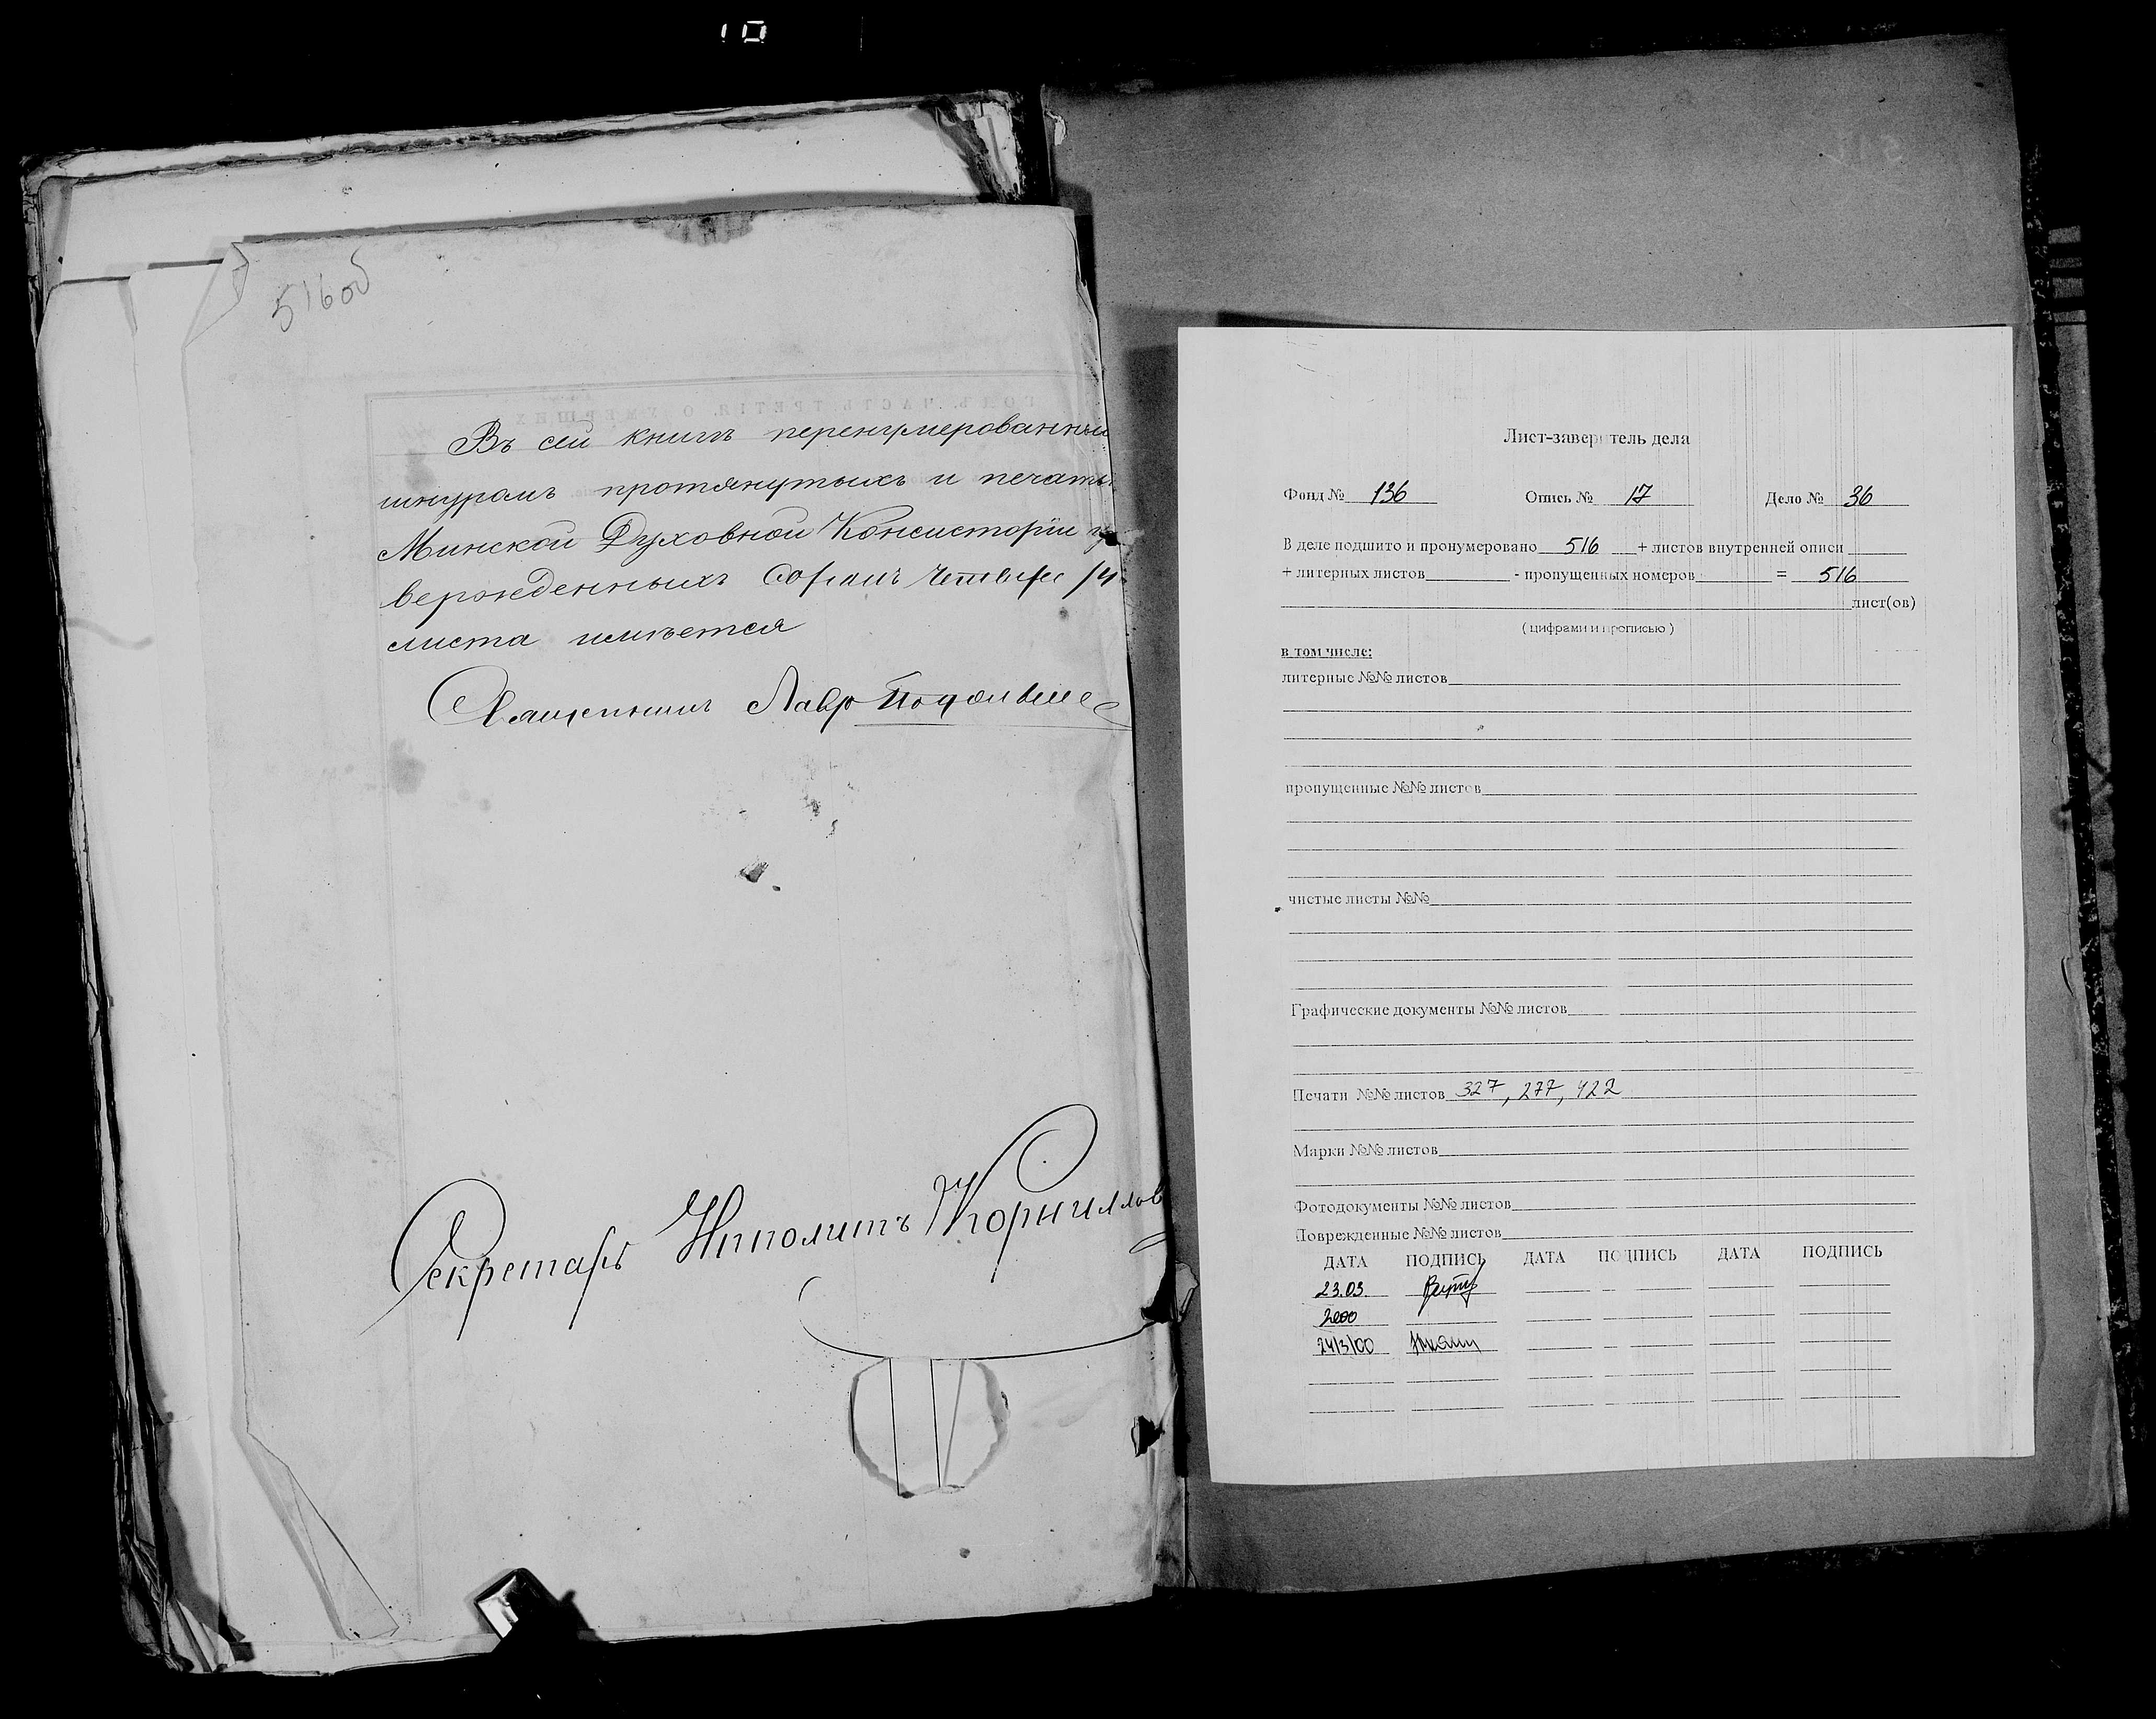 516об
Въ сей книгѣ перенумерованныхъ
шнуромъ протянутыхъ и печатью
Минской Духовной Консисторіи
вержденныхъ Сорокъ четыре /44
листа имѣется
Священникъ Лавр
Секретарь Ипполитъ Корнилловъ
Лист-заверитель дела
Фонд № 136 Опись № 17 Дело № 36
В деле подшито и пронумеровано 516 + листов внутренней описи
+ литерных листов - пропущенных номеров = 516
лист(ов)
( цифрами и прописью )
в том числе:
литерные №№ листов
пропущенные №№ листов
чистые листы №№
Графические документы №№ листов
Печати №№ листов 327, 277, 422
Марки №№ листов
Фотодокументы №№ листов
Поврежденные №№ листов
ДАТА ПОДПИСЬ ДАТА ПОДПИСЬ ДАТА ПОДПИСЬ
23.03.
2000
24/3/00